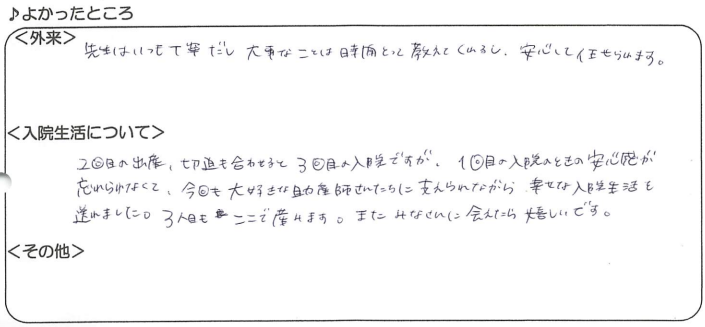 ♪よかったところ
<外来>
先生はいつも丁寧だし 大事なことは時間とって教えてくれるし、安心して任せられます。
<入院生活について>
2回目の出産、切迫も合わせると3回目の入院ですが、1回目の入院のときの安心感が
忘れられなくて、今回も大好きな助産師さんたちに支えられながら 幸せな入院生活を
送れました。3人目もここで産みます。またみなさんに会えたら嬉しいです。
<その他>